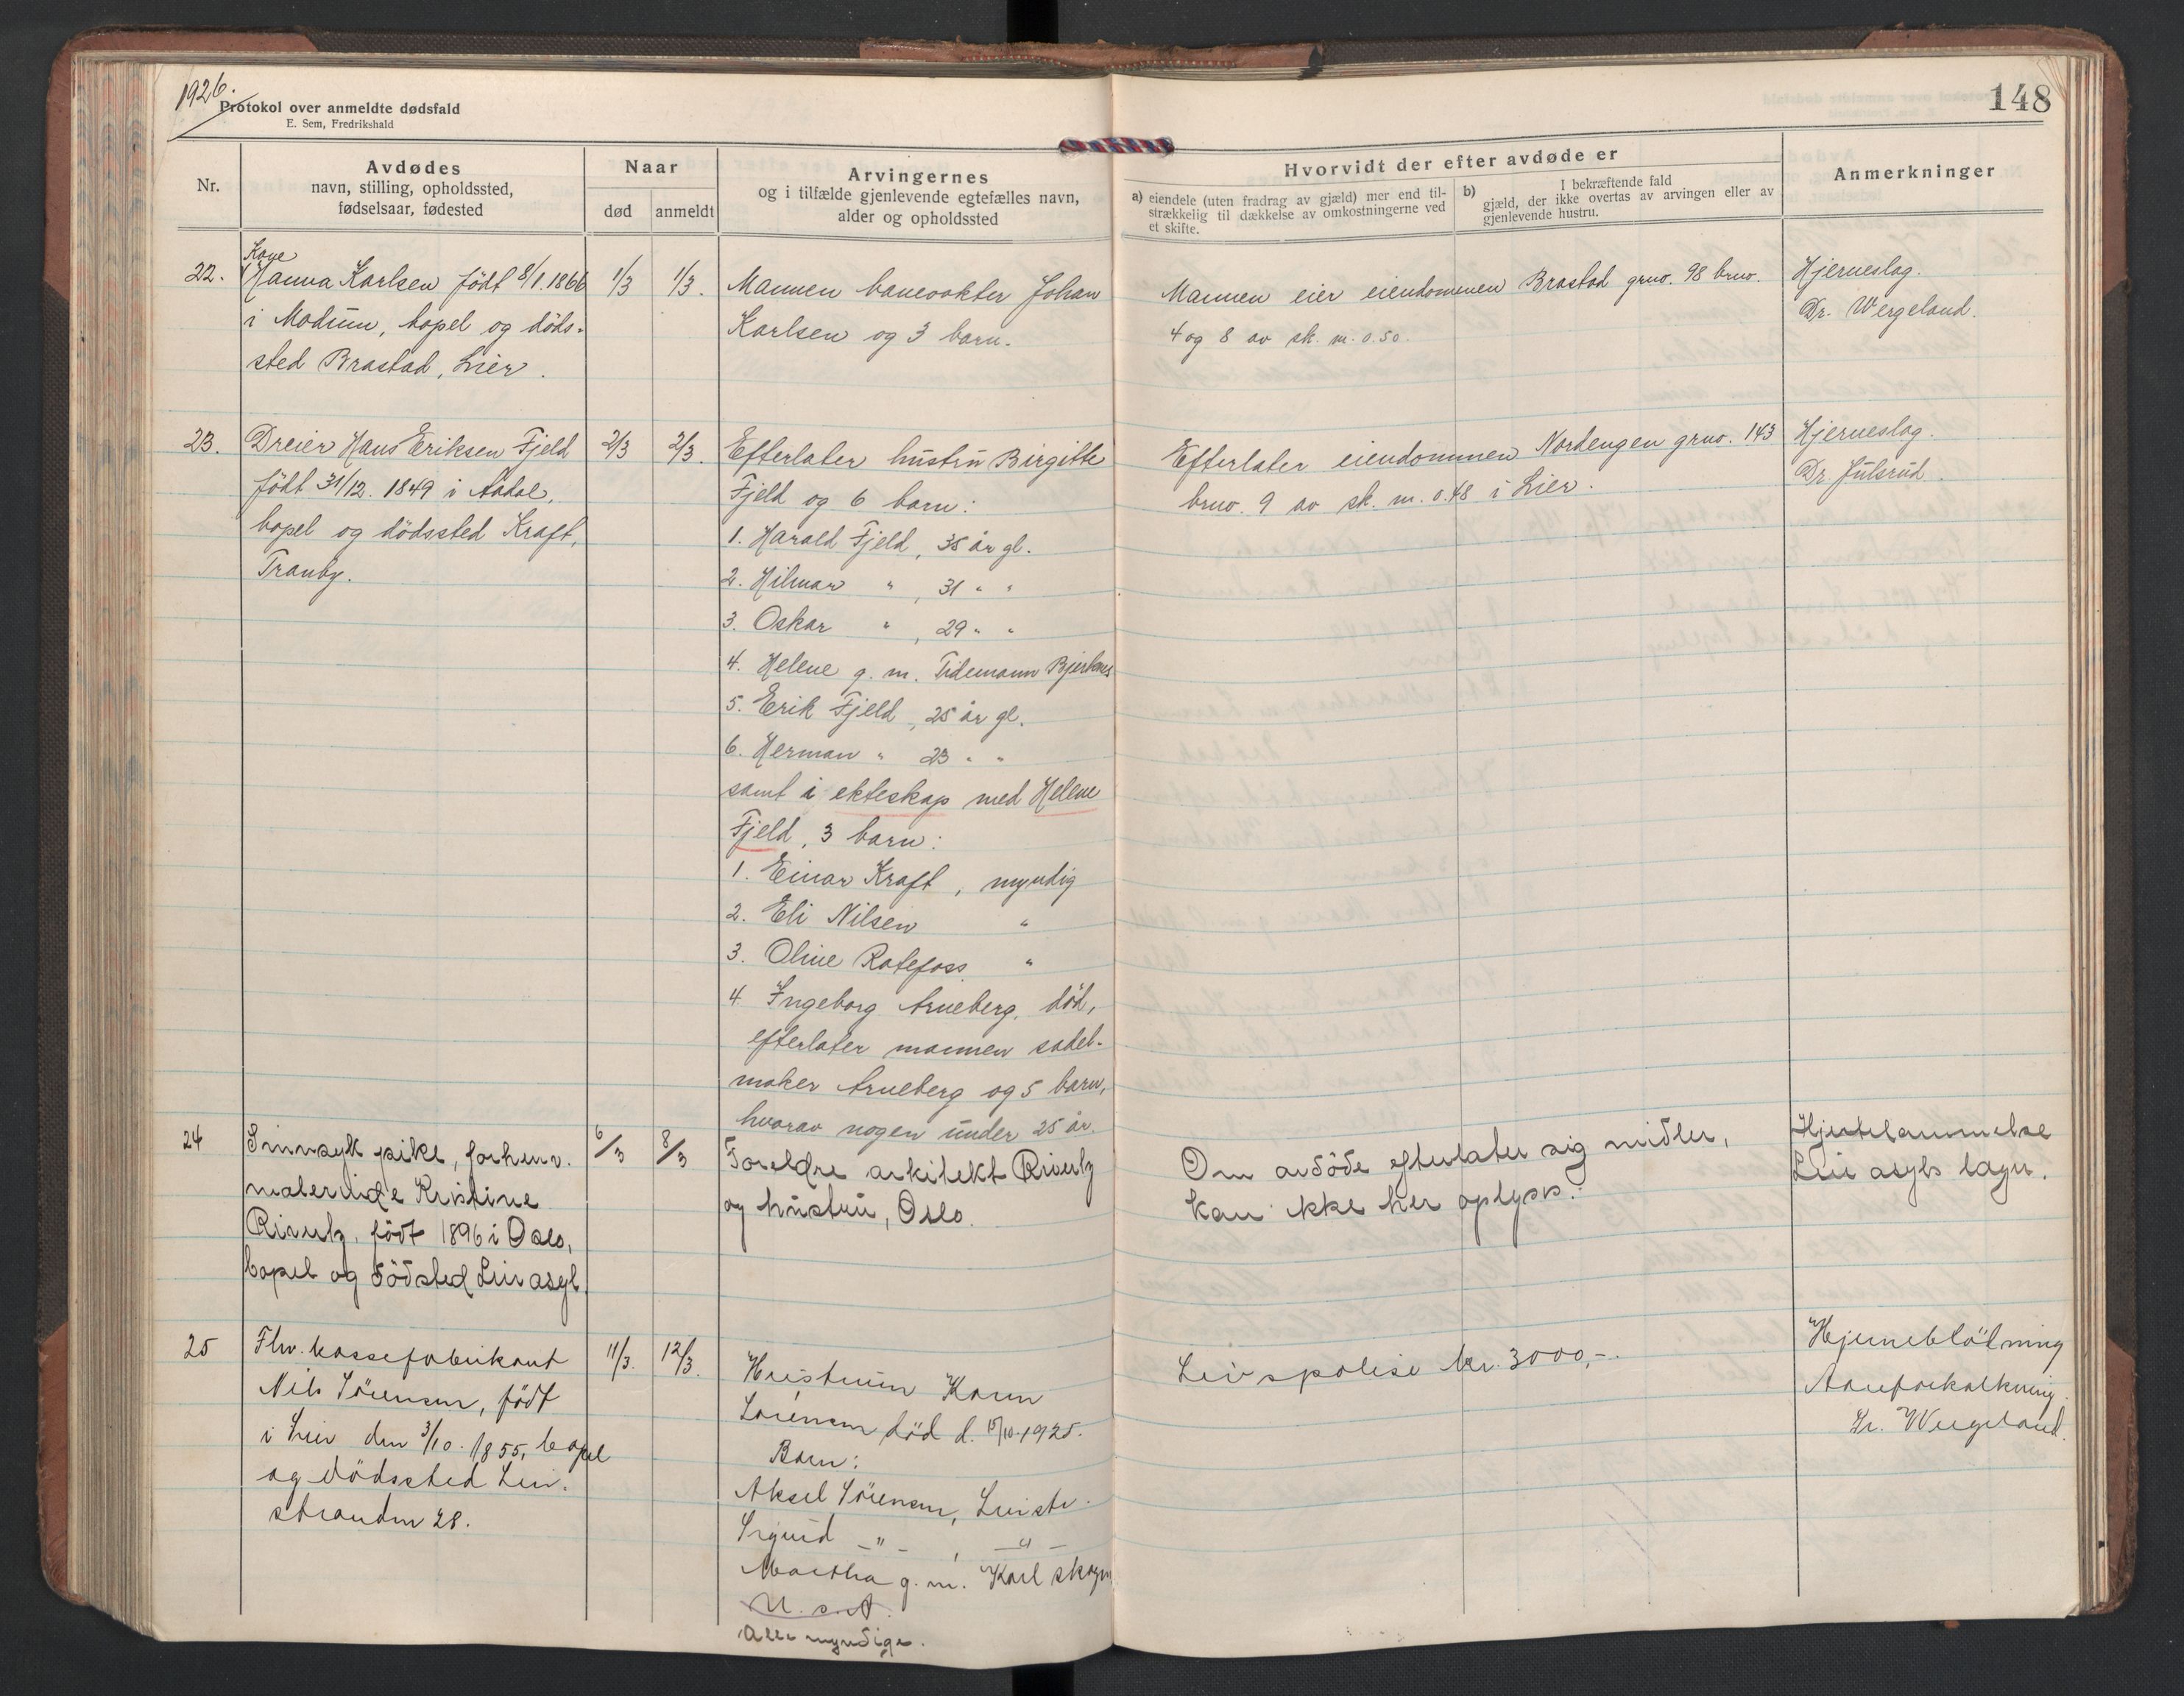 1926.
Protokol over anmeldte dødsfald
E. Sem, Fredrikshald
148
Nr.
Avdødes
navn, stilling, opholdssted,
fødselsaar, fødested
Naar
død
anmeldt
Arvingernes
og i tilfælde gjenlevende egtefælles navn,
alder og opholdssted
Hvorvidt der efter avdøde er
a) eiendele (uten fradrag av gjæld) mer end til-
strækkelig til dækkelse av omkostningerne ved
et skifte.
b) I bekræftende fald
gjæld, der ikke overtas av arvingen eller av
gjenlevende hustru.
Anmerkninger
22.
Kone
Hanna Karlsen født 8/1.1866
i Modum, bopel og døds-
sted Brastad, Lier.
1/3
1/3.
Mannen banevokter Johan
Karlsen og 3 barn.
Mannen eier eiendommen Brastad grno. 98 brno.
4 og 8 av sk. m. 0.50.
Hjerneslag.
Dr. Wergeland.
23.
Dreier Hans Eriksen Fjeld
født 31/12. 1849 i Aadal,
bopel og dödssted Kraft,
Tranby.
2/3
2/3.
Efterlater hustru Birgitte
Fjeld og 6 barn:
1. Harald Fjeld, 35 år gl.
2. Hilmar " , 31 " "
3. Oskar " , 29 " "
4. Helene g. m. Tidemann Bjerknes
5. Erik Fjeld, 25 år gl.
6. Herman " 23 " "
samt i ekteskap med Helene
Fjeld, 3 barn:
1. Einar Kraft, myndig
2. Eli Nilsen "
3. Oline Ratefoss "
4 Ingeborg Arneberg, död,
efterlater mannen sadel-
maker Arneberg og 5 barn,
hvorav nogen under 25 år.
Efterlater eiendommen Nordengen grno. 143
brno. 9 av sk. m. 0.48 i Lier.
Hjerneslag.
Dr Julsrud.
24
Sinnsyk pike, forhenv.
malerinde Kristine
Rivertz, födt 1896 i Oslo,
bopel og dödsted Lier asyl.
6/3
8/3
Foreldre arkitekt Rivertz
og hustru, Oslo.
Om avdöde efterlater sig midler,
kan ikke her oplyses.
Hjertelammelse
Lier asyls læger.
25
Fhv. kassefabrikant
Nils Sörensen, födt
i Lier den 3/10. 1855, bopel
og dödssted Lier-
stranden 28.
11/3.
12/3.
Hustruen Karen
Sörensen död d. 15/10.1925.
Barn:
Aksel Sörensen, Lierstr.
Sigurd -"- , -"-
Martha g. m. Karl Skogen
U. S. A.
Alle myndige.
Livspolise kr. 3000,-.
Hjerneblödning
Aareforkalkning.
Dr. Wergeland.